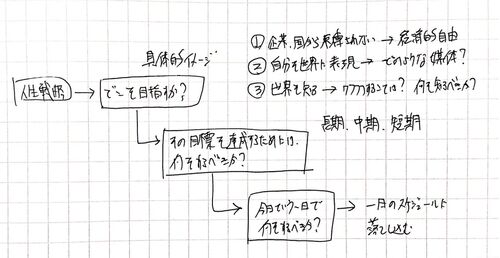 具体的イメージ
人生戦略
どこを目指すか?
① 企業、国から束縛されない → 経済的自由
② 自分を世界に表現 → どのような媒体?
③ 世界を知る → ワクワクすることは? 何を知るべきか?
長期、中期、短期
その目標を達成するためには、
何をするべきか?
今日という一日で
何をするべきか?
一日のスケジュール
落とし込む